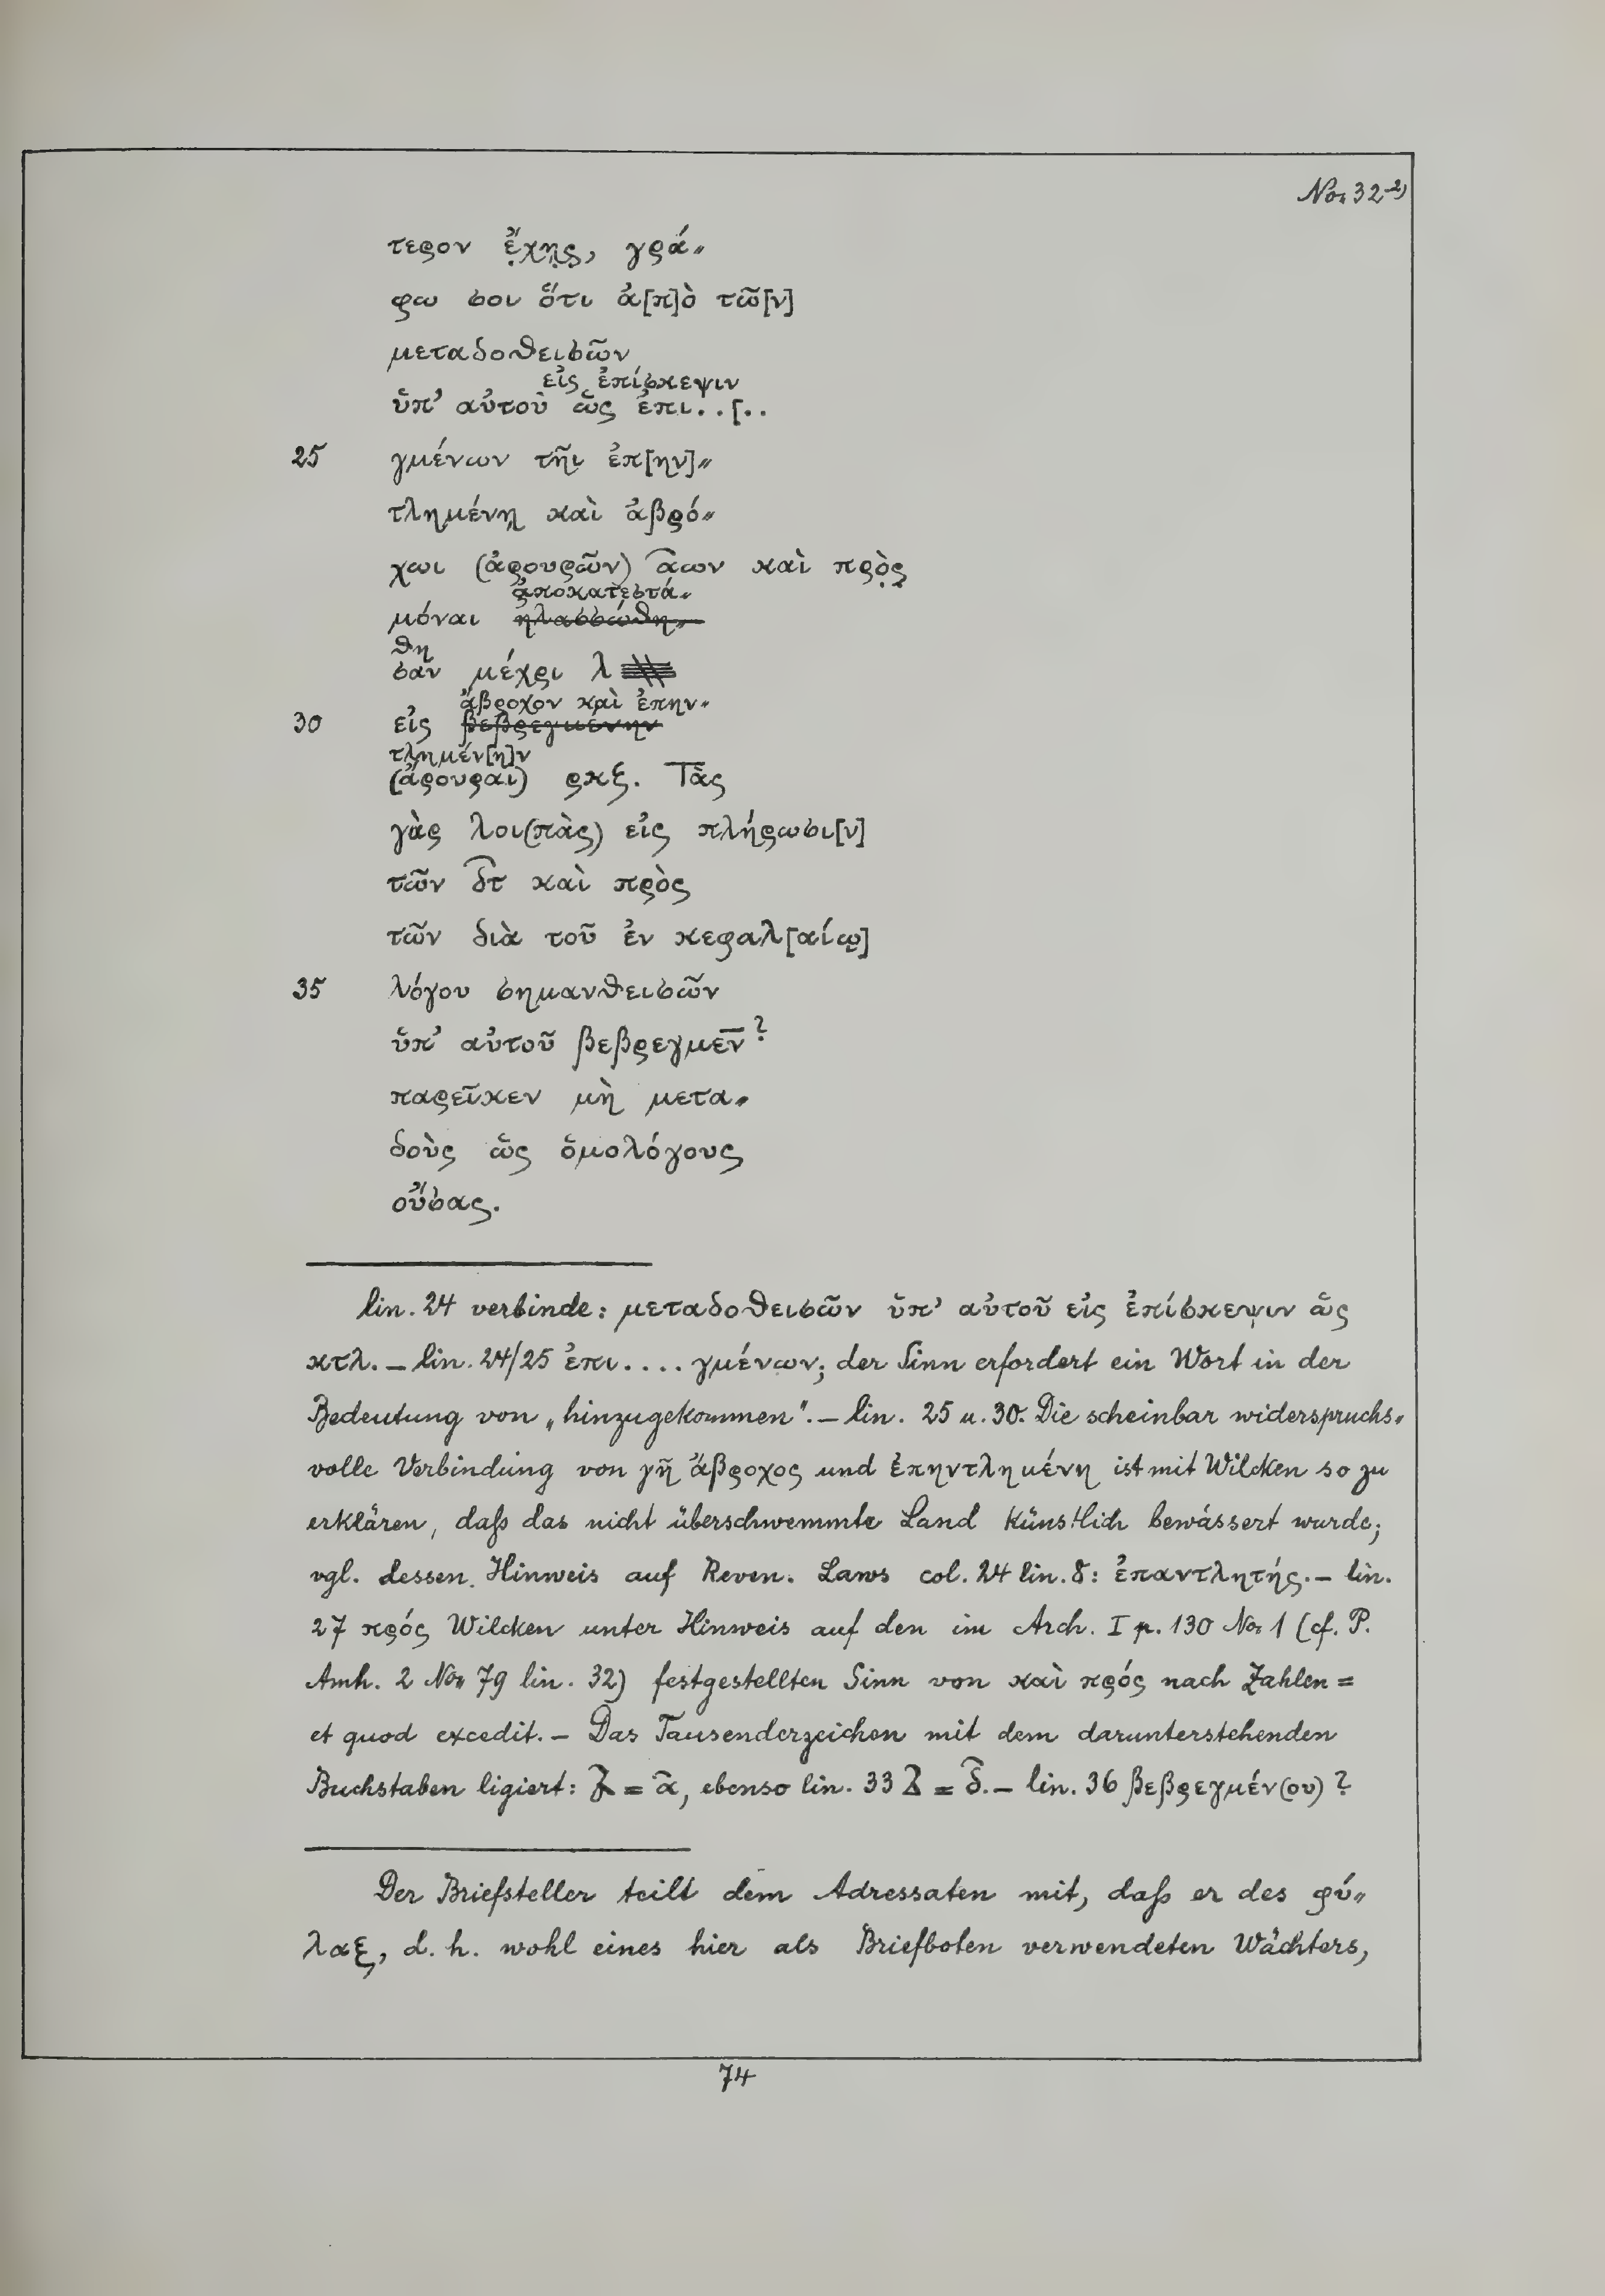 No. 32²⁾
τερον ἔ̣χη̣ς̣, γρά-
φω σοι ὅτι ἀ[π]ὸ τῶ[ν]
μεταδοθεισῶν
εἰς ἐπίσκεψιν
ὑπ' αὐτοῦ ὡς ἐπι..[..
25 γμένων τῆι ἐπ[ην]-
τλημένῃ καὶ ἀβρό-
χωι (ἀρουρῶν) α͡ων καὶ πρὸ̣ς̣
ἀ̣ποκατεστά-
μόναι ~~ηλασσώθη-~~
θη
σαν μέχρι λ
ἄβροχον καὶ ἐπην-
30 εἰς ~~βεβρεγμένην~~
τλημέν[η]ν
(ἄρουραι) ρκξ. Τὰς
γὰρ λοι(πὰς) εἰς πλήρωσι[ν]
τῶν δ͡τ καὶ πρὸς
τῶν διὰ τοῦ ἐν κεφαλ[αίῳ]
35 λόγου σημανθεισῶν
ὑπ' αὐτοῦ βεβρεγμεν̅ ?
παρεῖκεν μὴ μετα-
δοὺς ὡς ὁμολόγους
οὔσας.
lin. 24 verbinde: μεταδοθεισῶν ὑπ' αὐτοῦ εἰς ἐπίσκεψιν ὡς
κτλ. – lin. 24/25 ἐπι....γμένων; der Sinn erfordert ein Wort in der
Bedeutung von „hinzugekommen". – lin. 25 u. 30. Die scheinbar widerspruchs-
volle Verbindung von γῆ ἄβροχος und ἐπηντλημένη ist mit Wilcken so zu
erklären, daß das nicht überschwemmte Land künstlich bewässert wurde;
vgl. dessen Hinweis auf Reven. Laws col. 24 lin. 8: ἐπαντλητής. – lin.
27 πρός Wilcken unter Hinweis auf den im Arch. I p. 130 No. 1 (cf. P.
Amh. 2 No. 79 lin. 32) festgestellten Sinn von καὶ πρός nach Zahlen =
et quod excedit. – Das Tausenderzeichen mit dem darunterstehenden
Buchstaben ligiert: = α͡, ebenso lin. 33 = δ͡. – lin. 36 βεβρεγμέν(ου) ?
Der Briefsteller teilt dem Adressaten mit, daß er des φύ-
λαξ, d. h. wohl eines hier als Briefboten verwendeten Wächters,
74